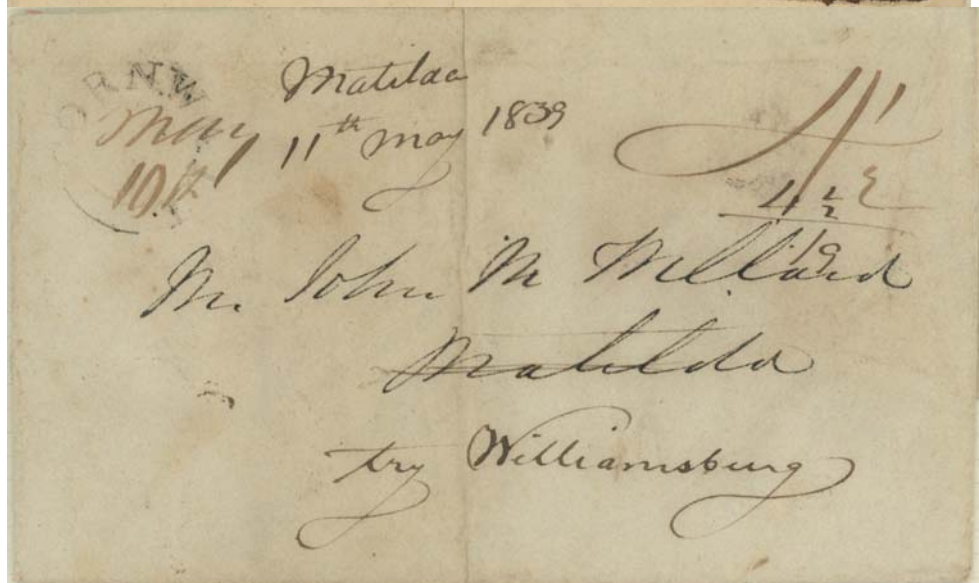 ORNW
May
10th
Matilda
11th May 1839
4 1/2
4 1/2
9
Mr. John M Millard
Matilda
try Williamsburg